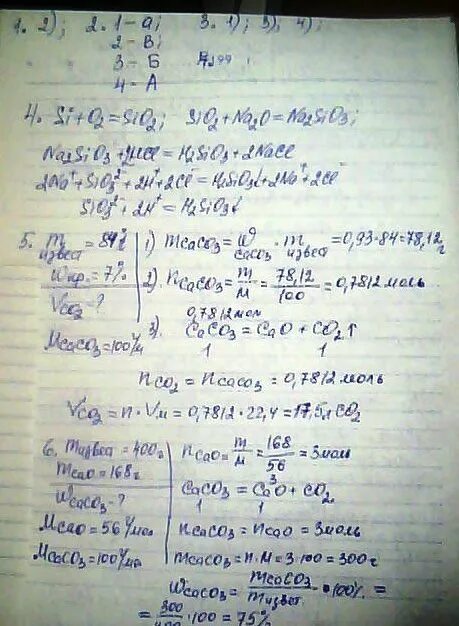 1. 2); 2. 1 – а; 3. 1); 3); 4);
2 – В;
3 – Б
4 – А
4. Si + O₂ = SiO₂; SiO₂ + Na₂O = Na₂SiO₃;
Na₂SiO₃ + 2HCl = H₂SiO₃ + 2NaCl
2Na⁺ + SiO₃²⁻ + 2H⁺ + 2Cl⁻ = H₂SiO₃↓ + 2Na⁺ + 2Cl⁻
SiO₃²⁻ + 2H⁺ = H₂SiO₃↓
5. m извест = 84г
Wпр. = 7%
Vco₂ – ?
Mcaco₃ = 100г/м
1) mcaco₃ = W caco₃ · m извест = 0,93·84 = 78,12г
2). ncaco₃ = m/M = 78,12/100 = 0,7812 моль
0,7812 мол
3). CaCO₃ = CaO + CO₂↑
1 1
nco₂ = ncaco₃ = 0,7812 моль
Vco₂ = n · Vм = 0,7812 · 22,4 = 17,5л CO₂
6. mизвест = 400г
mcao = 168г
Wcaco₃ – ?
Mcao = 56г/мол
Mcaco₃ = 100г/мол
ncao = m/M = 168/56 = 3моль
3
CaCO₃ = CaO + CO₂
1 1
ncaco₃ = ncao = 3моль
mcaco₃ = n·M = 3·100 = 300г
Wcaco₃ = mcaco₃/mизвест · 100% =
= 300/400 · 100 = 75%